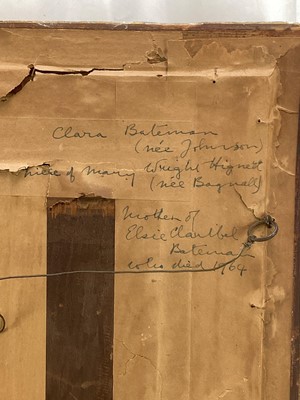 Clara Bateman
(née Johnson)
niece of Mary Wright Hignett
(née Bagnall)
Mother of
Elsie Claribel
Bateman
who died 1964